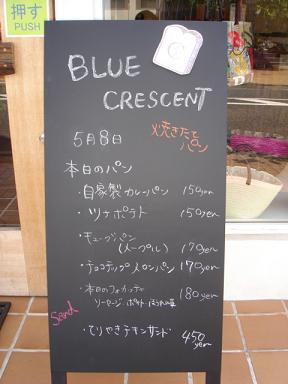 押す
PUSH
BLUE
CRESCENT
5月8日
焼きたて
パン
本日のパン
・自家製カレーパン 150yen
・ツナポテト 150yen
・キューブパン
(メープル) 170yen
・チョコチップメロンパン 170yen
・本日のフォカッチャ 180yen
ソーセージ・ポテト・ほうれん草
Sand
・てりやきチキンサンド 450
yen